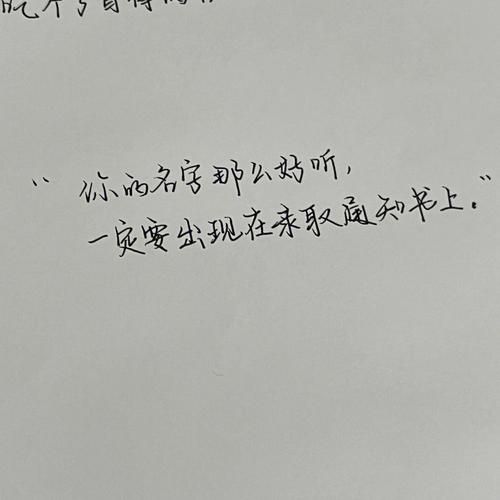 “你的名字那么好听,
一定要出现在录取通知书上.”